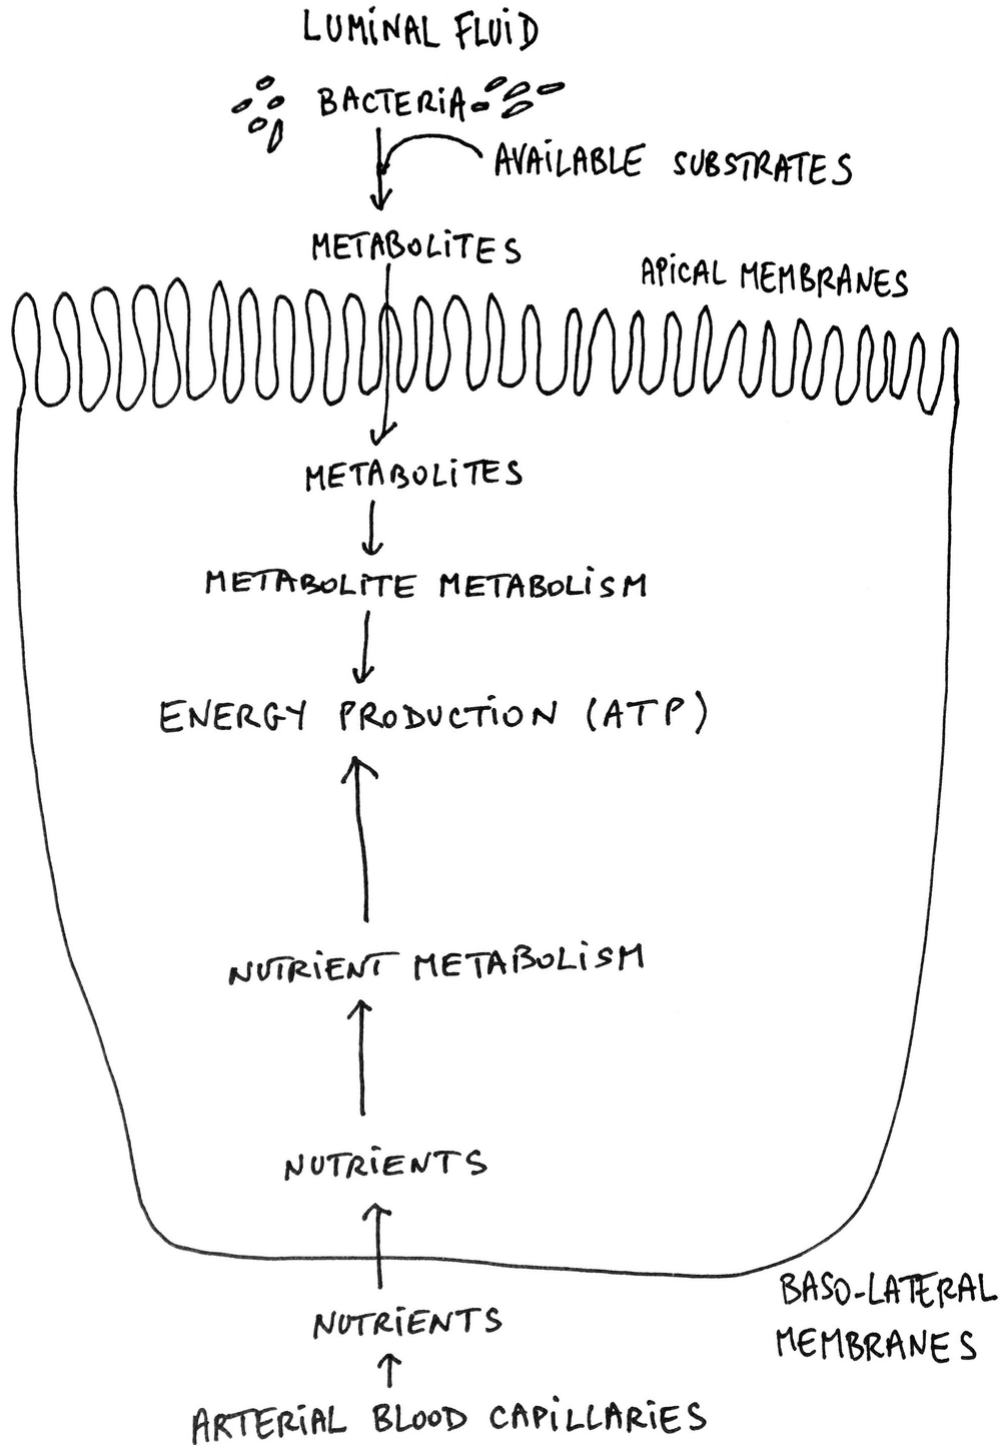 LUMiNAL FLUiD
BACTERiA
AVAiLABLE SUBSTRATES
METABOLiTES
APiCAL MEMBRANES
METABOLiTES
METABOLiTE METABOLiSM
ENERGY PRODUCTiON (ATP)
NUTRiENT METABOLiSM
NUTRiENTS
BASO-LATERAL
MEMBRANES
NUTRiENTS
ARTERiAL BLOOD CAPiLLARiES